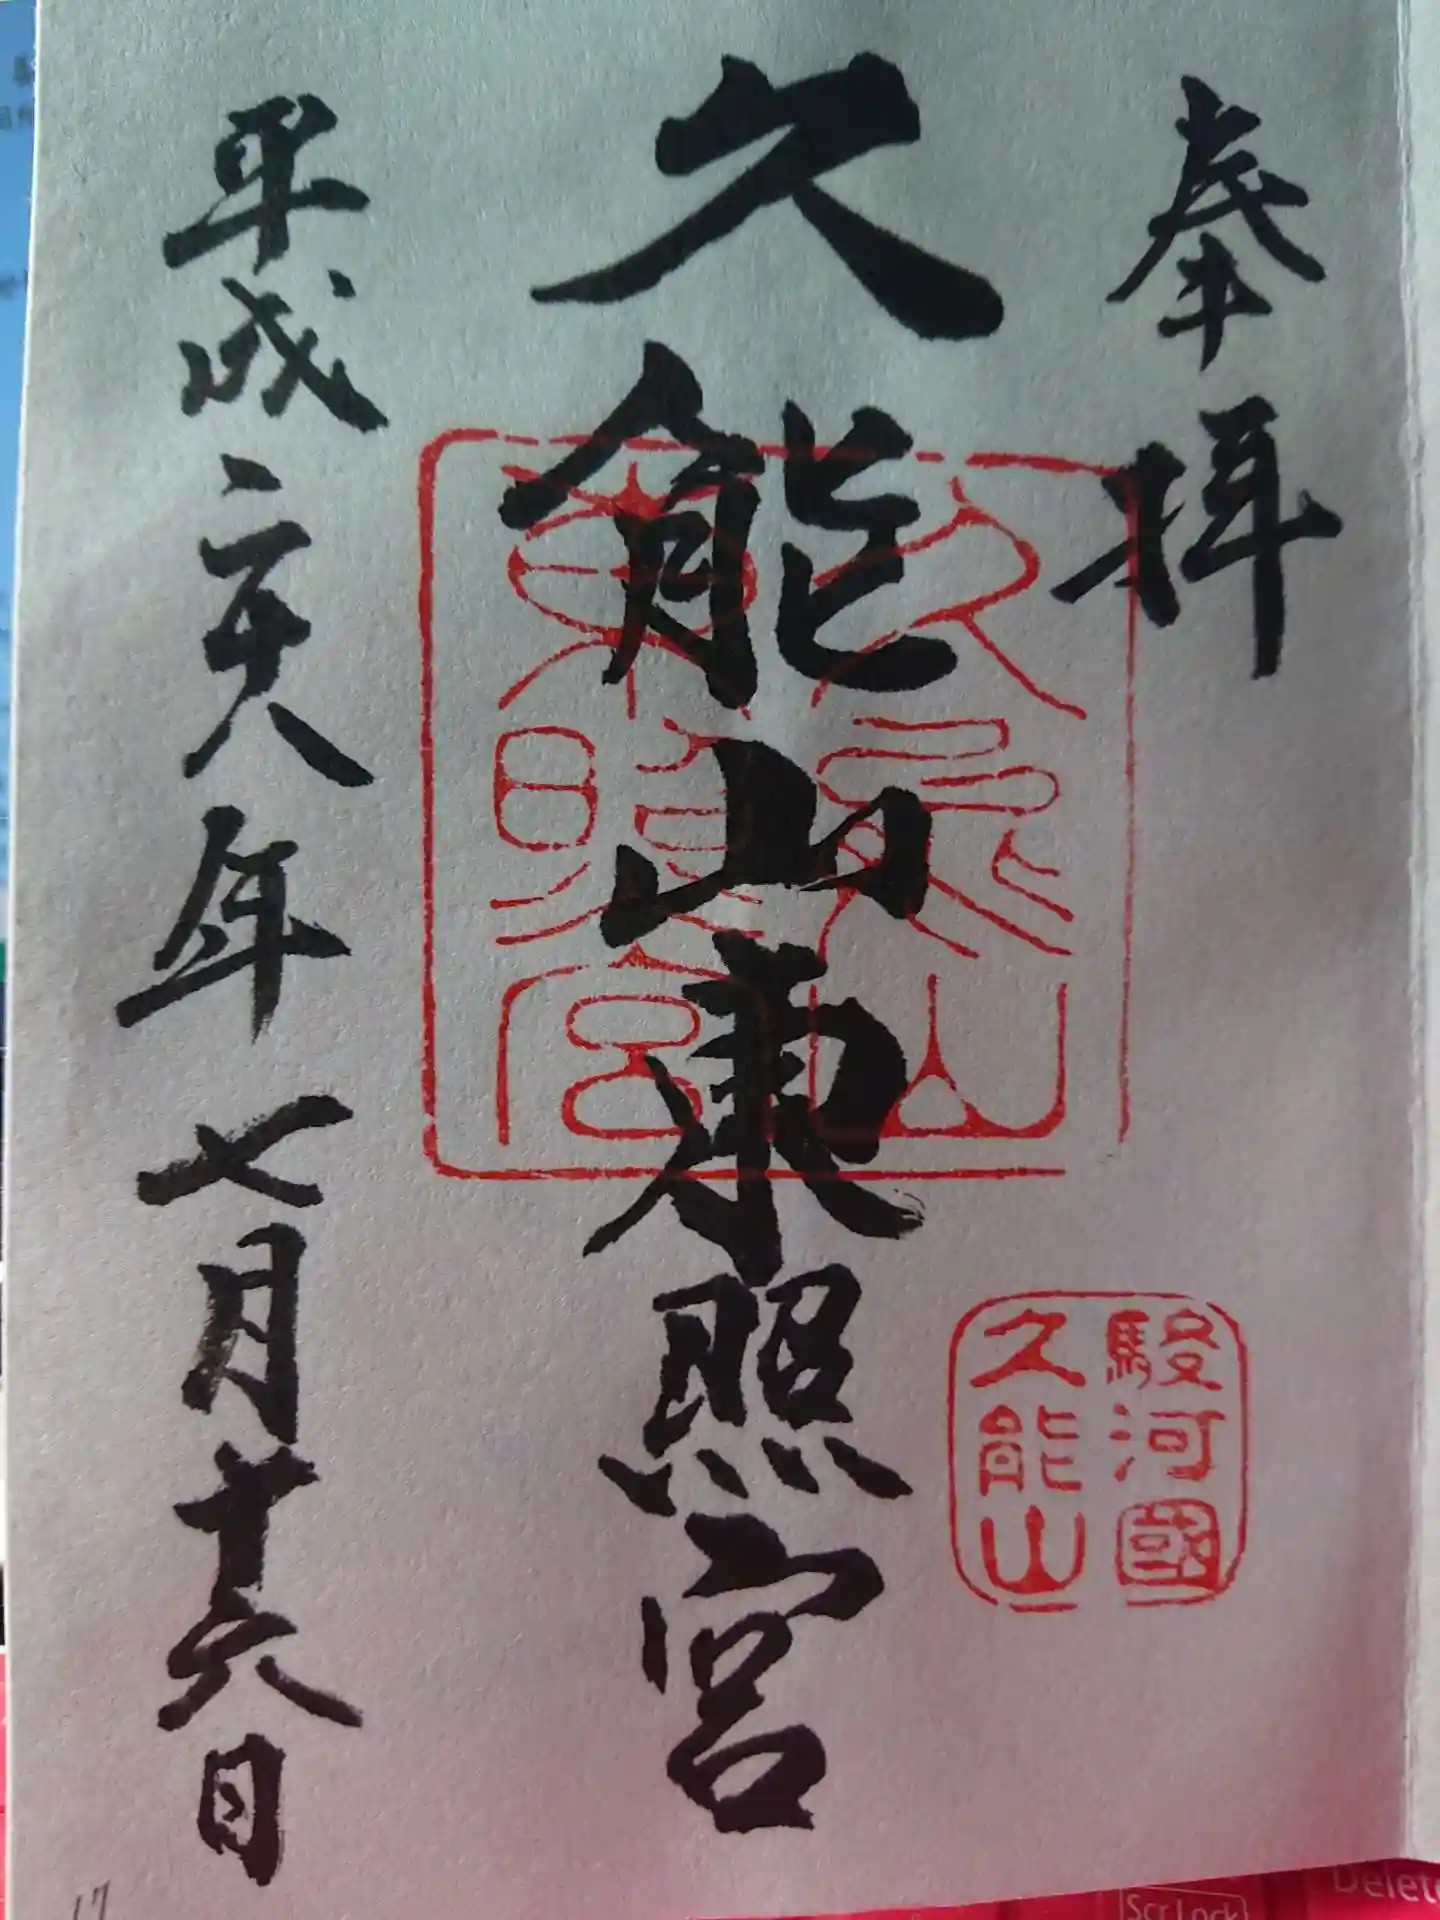 奉拝
久能山東照宮
平成二十八年七月十六日
久能山
東照宮
駿河國
久能山
17
ScrLock
Delete